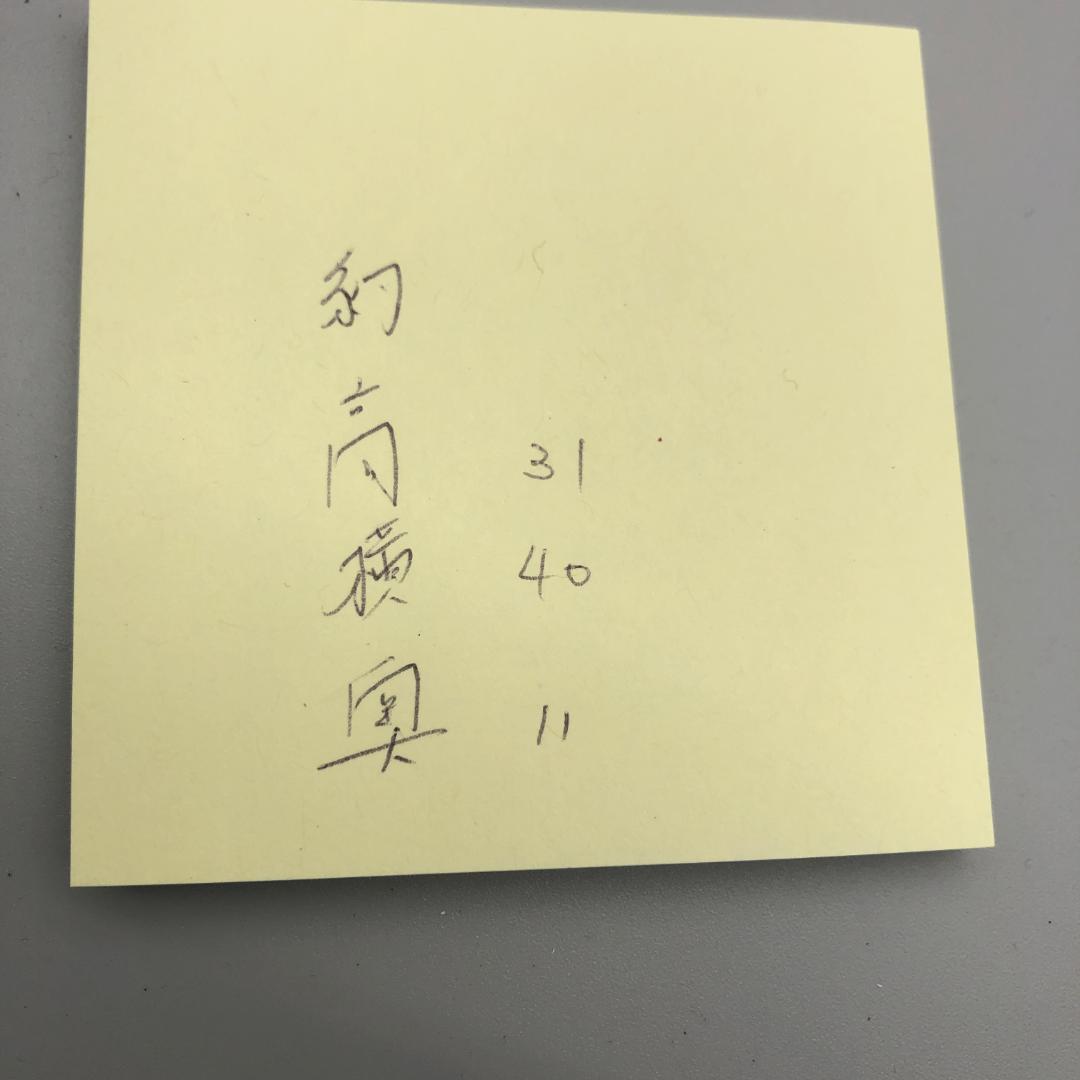 約
高 31
横 40
奥 11